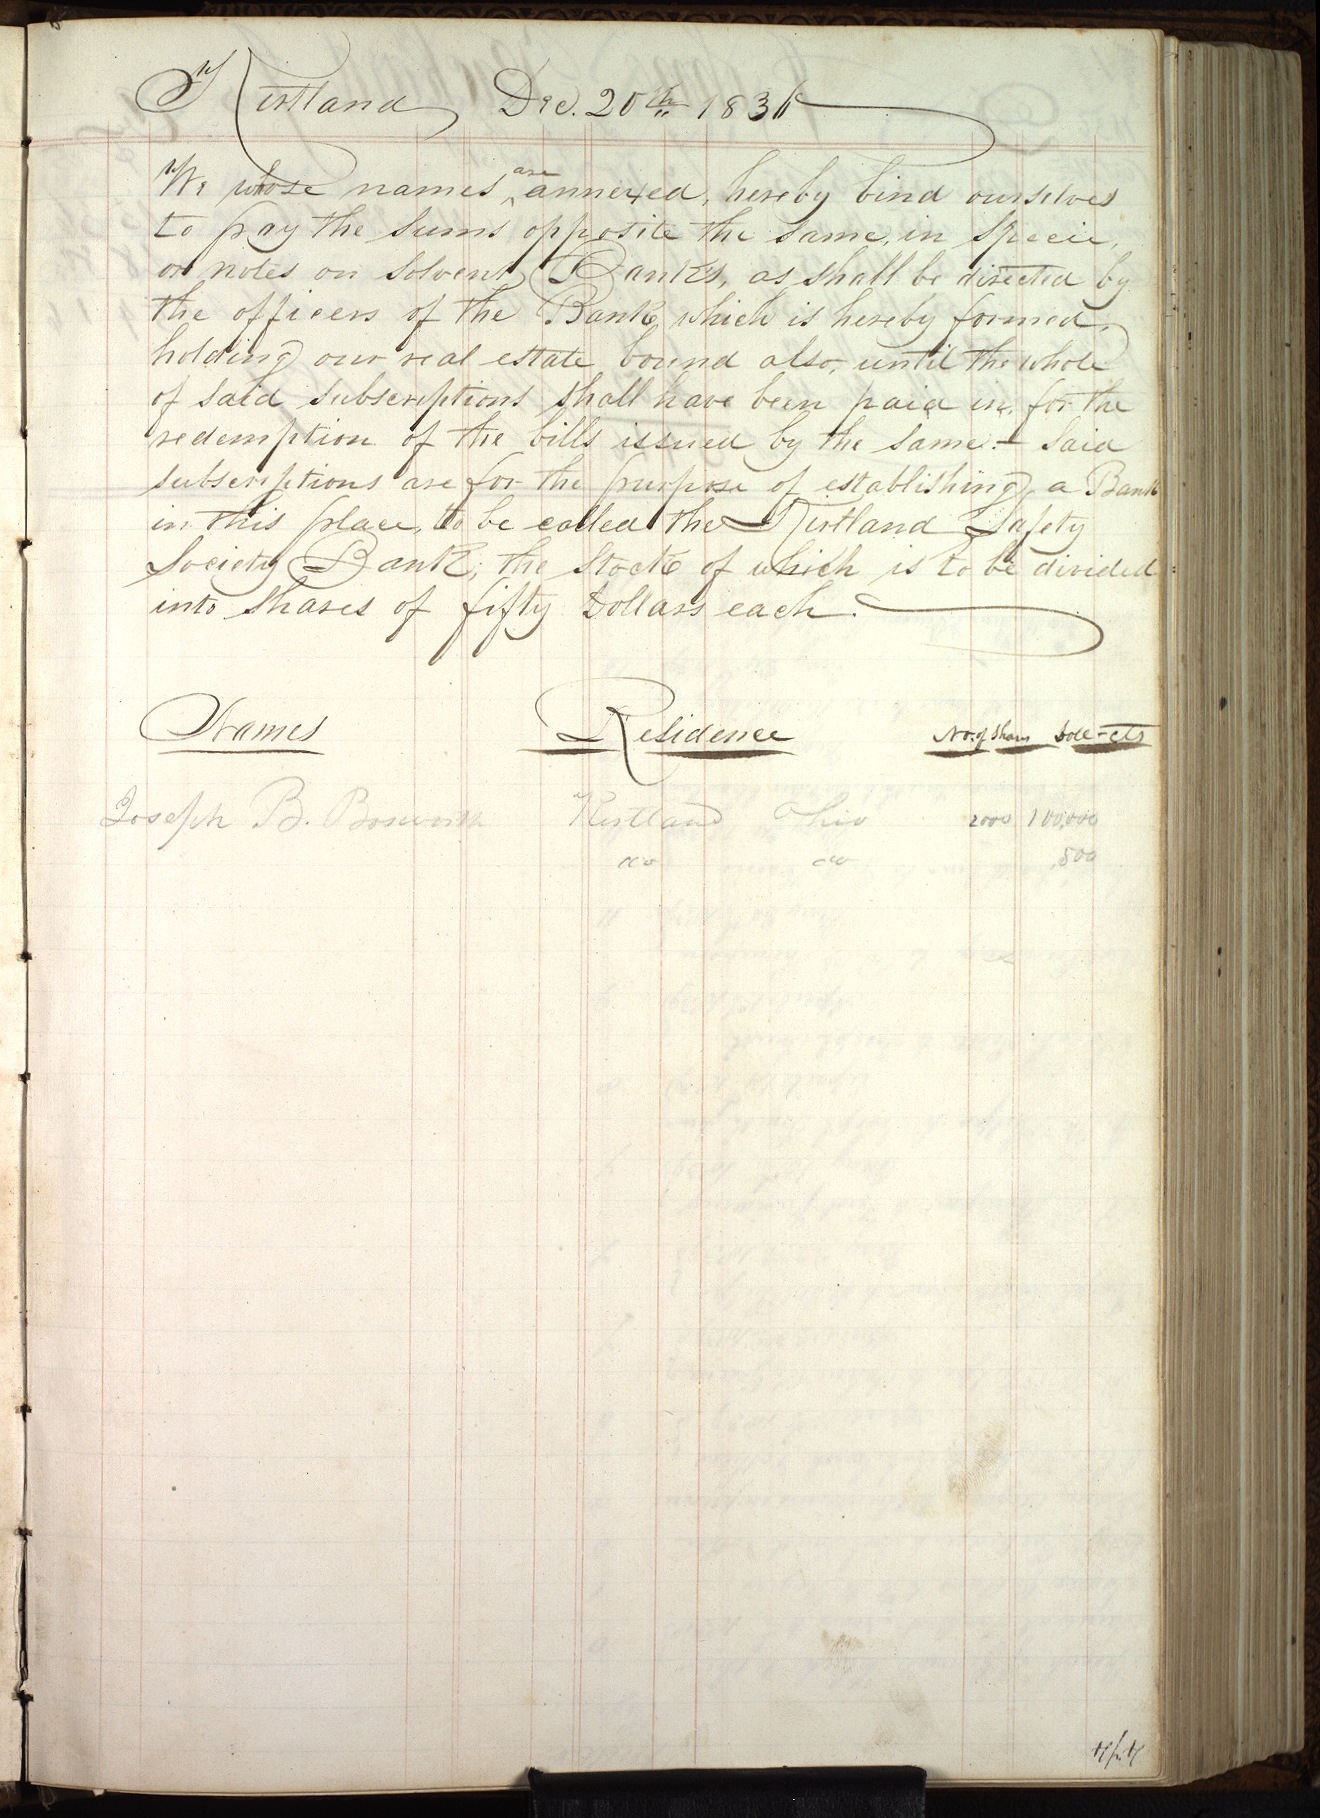 Kirtland Dec. 20th 1836
We whose names are annexed, hereby bind ourselves
to pay the sums opposite the same, in specie,
or notes on solvent Banks, as shall be directed by
the officers of the Bank which is hereby formed,
holding our real estate bound also, until the whole
of said subscriptions shall have been paid in, for the
redemption of the bills issued by the same.— Said
subscriptions are for the purpose of establishing a Bank
in this place, to be called the Kirtland Safety
Society Bank; the Stock of which is to be divided
into shares of fifty Dollars each.
Names Residence No. of Shares Doll—cts
Joseph B. Bosworth Kirtland Ohio 2000 100,000
do do 500